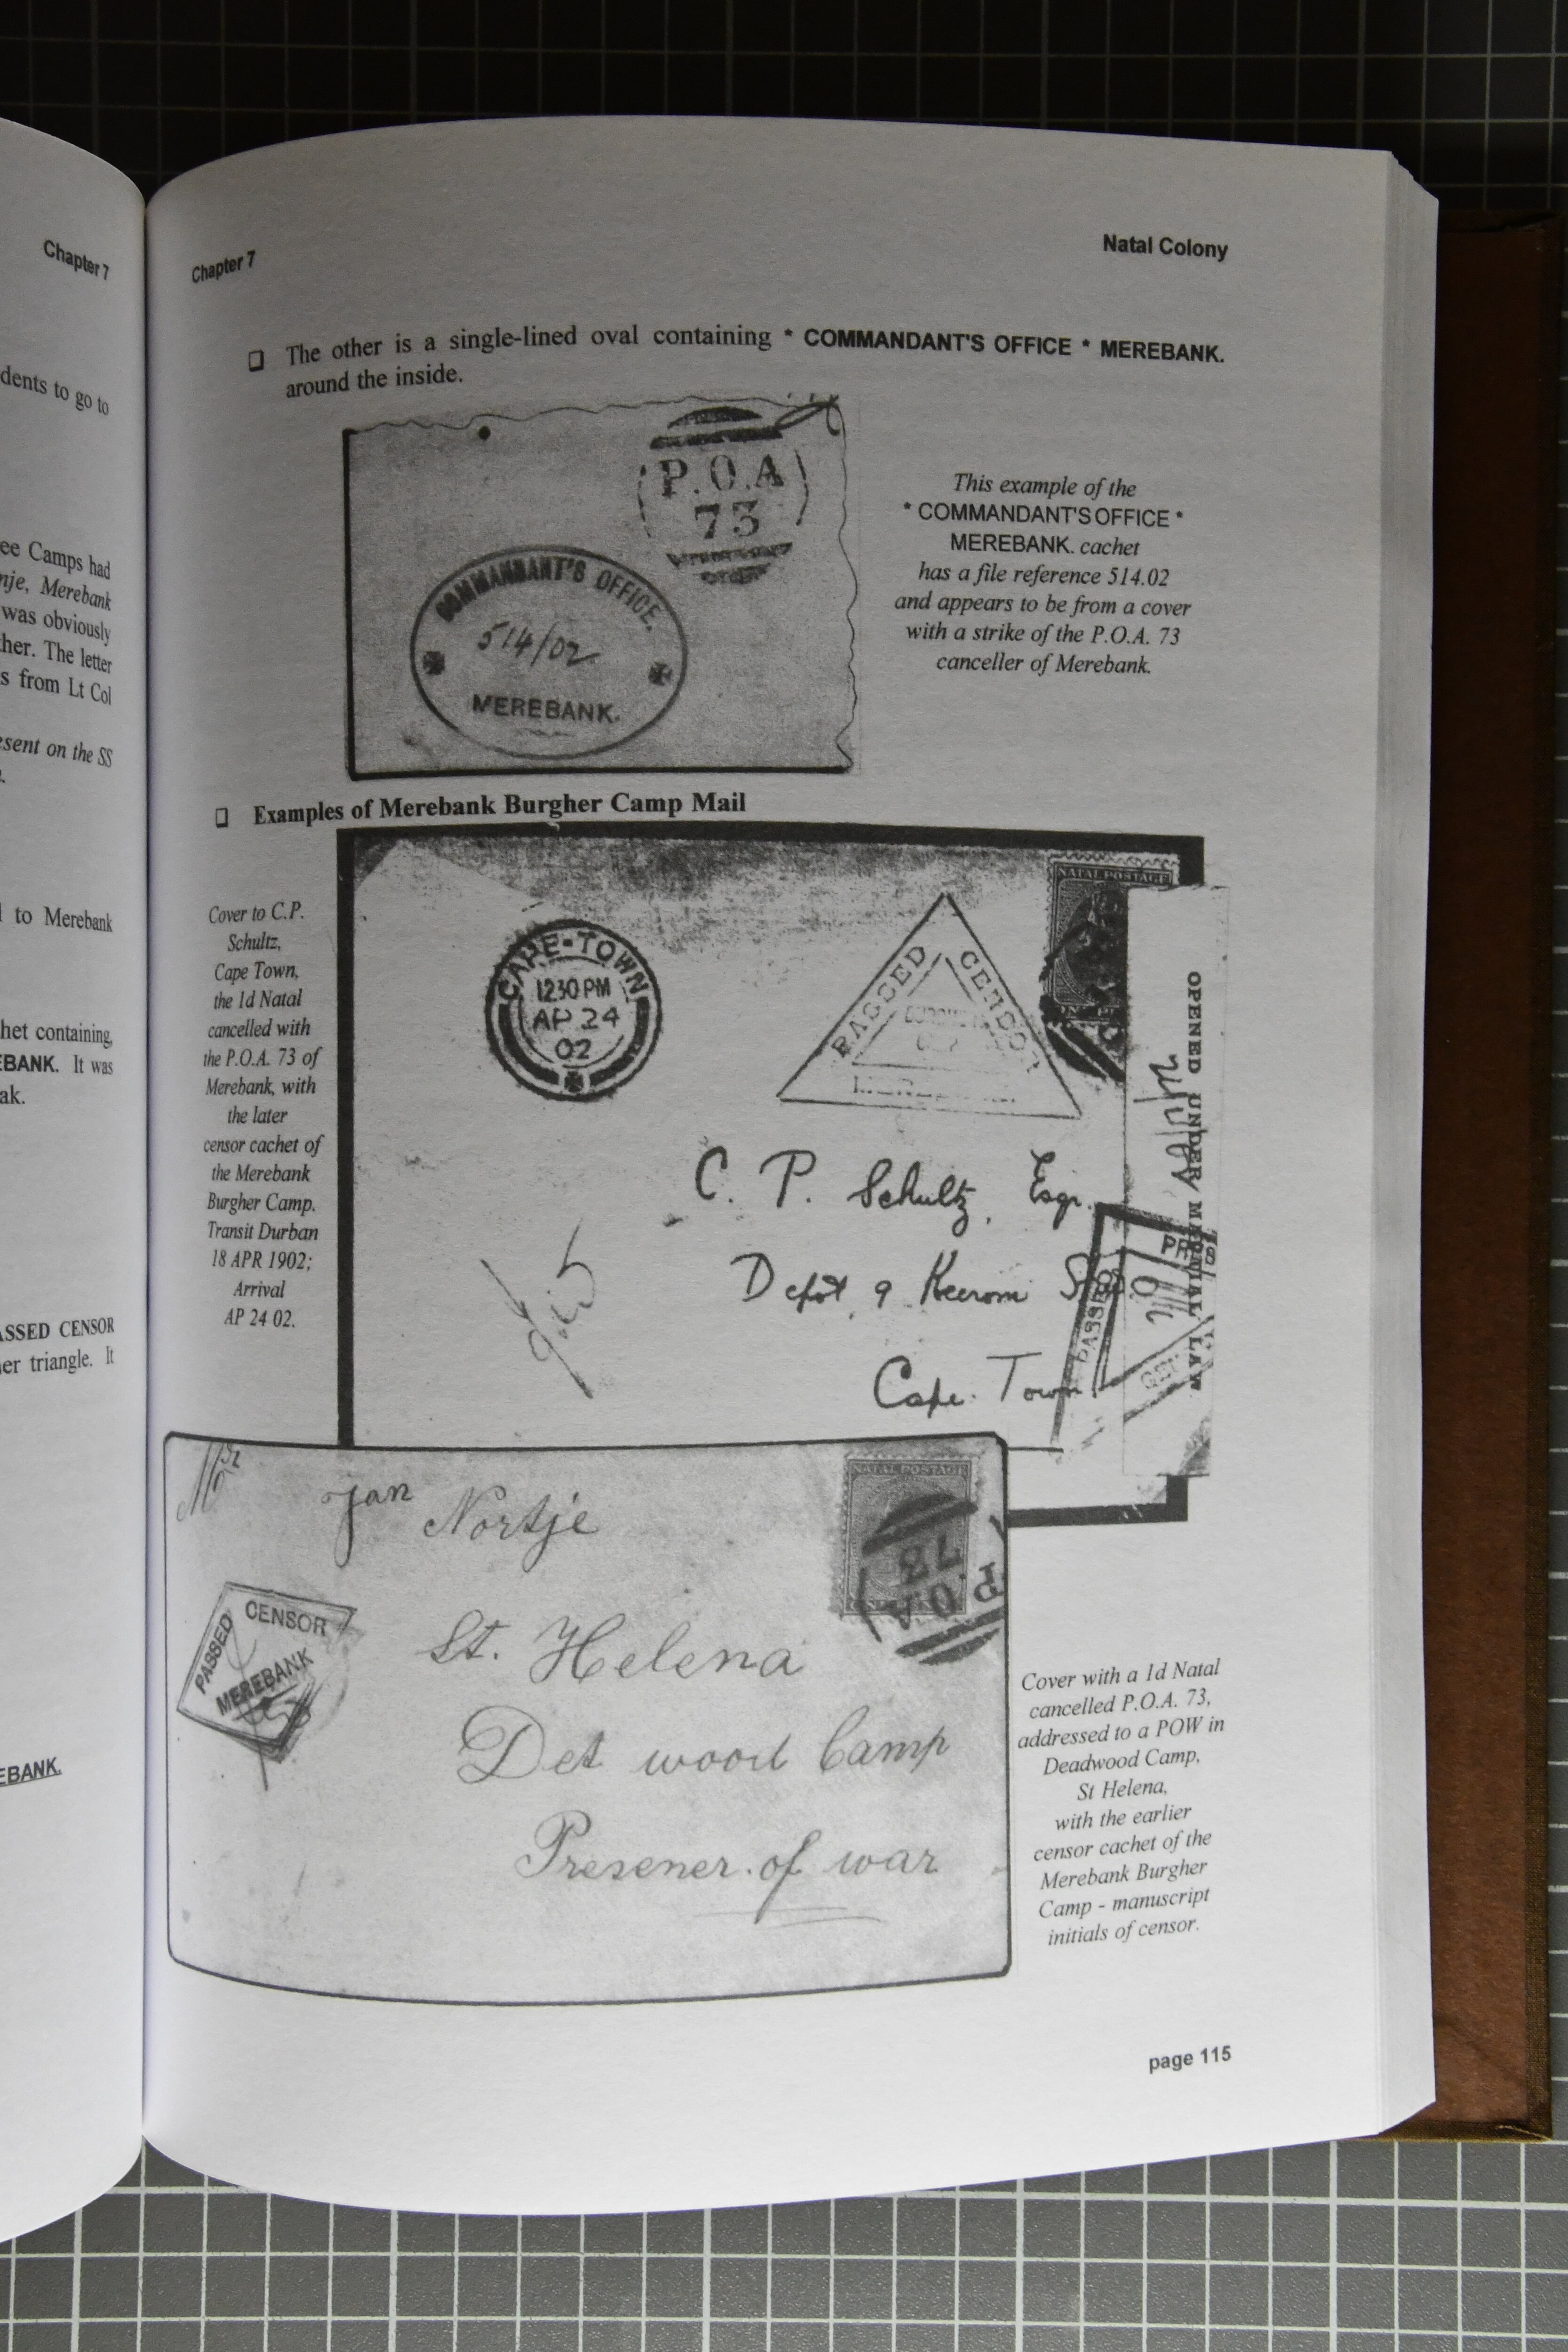 Chapter 7
dents to go to
ee Camps had
nje, Merebank
was obviously
ther. The letter
s from Lt Col
esent on the SS
l to Merebank
het containing,
EBANK. It was
ak.
ASSED CENSOR
er triangle. It
EBANK.
Chapter 7
Natal Colony
❑ The other is a single-lined oval containing * COMMANDANT'S OFFICE * MEREBANK.
around the inside.
P.O.A
73
COMMANDANT'S OFFICE.
514/02
MEREBANK.
This example of the
* COMMANDANT'S OFFICE *
MEREBANK. cachet
has a file reference 514.02
and appears to be from a cover
with a strike of the P.O.A. 73
canceller of Merebank.
❑ Examples of Merebank Burgher Camp Mail
Cover to C.P.
Schultz,
Cape Town,
the 1d Natal
cancelled with
the P.O.A. 73 of
Merebank, with
the later
censor cachet of
the Merebank
Burgher Camp.
Transit Durban
18 APR 1902;
Arrival
AP 24 02.
CAPE-TOWN
1230 PM
AP 24
02
PASSED CENSOR
NATAL POSTAGE
OPENED UNDER MARTIAL LAW
C. P. Schultz, Esqr.
Depôt, 9 Keerom
Cape Town
PASSED
Jan Nortje
St. Helena
Det wood Camp
Presener of war
NATAL POSTAGE
P.O.A
73
PASSED
CENSOR
MEREBANK
Cover with a 1d Natal
cancelled P.O.A. 73,
addressed to a POW in
Deadwood Camp,
St Helena,
with the earlier
censor cachet of the
Merebank Burgher
Camp - manuscript
initials of censor.
page 115